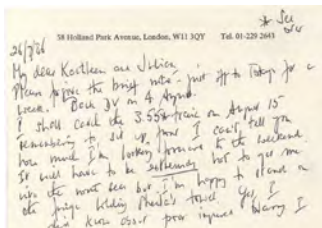 * See over
58 Holland Park Avenue, London, W11 3QY Tel. 01-229 2643
My dear Kathleen and Julian
Please forgive the brief note – just off to for a
week. Back DV on 4 August.
I shall catch the 3.55 train on August 15
remembering to sit up front I can't tell you
how much I'm looking forward to the weekend
It will have to be extremely hot to get me
into the north sea but I'm happy to stand on
the fringe holding Sheila's towel. Yes, I
know about poor hearing I